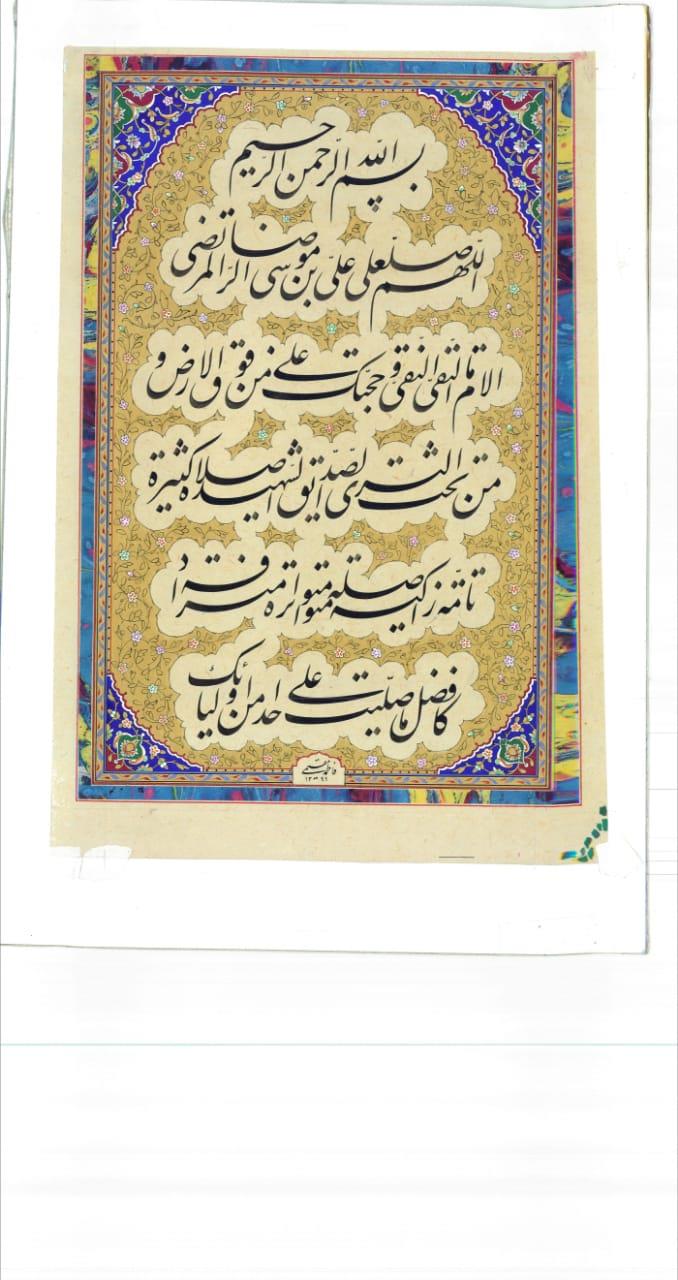 بسم الله الرّحمن الرّحیم
اللّهم صلّ علی علیّ بن موسی الرّضا المرتضی
الامام التّقیّ النّقیّ و حجّتک علی من فوق الارض و
من تحت الثّری الصّدّیق الشّهید صلاة کثیرة
تامّة زاکیة متواصلة متواترة مترادفة
کافضل ما صلّیت علی احد من اولیائک